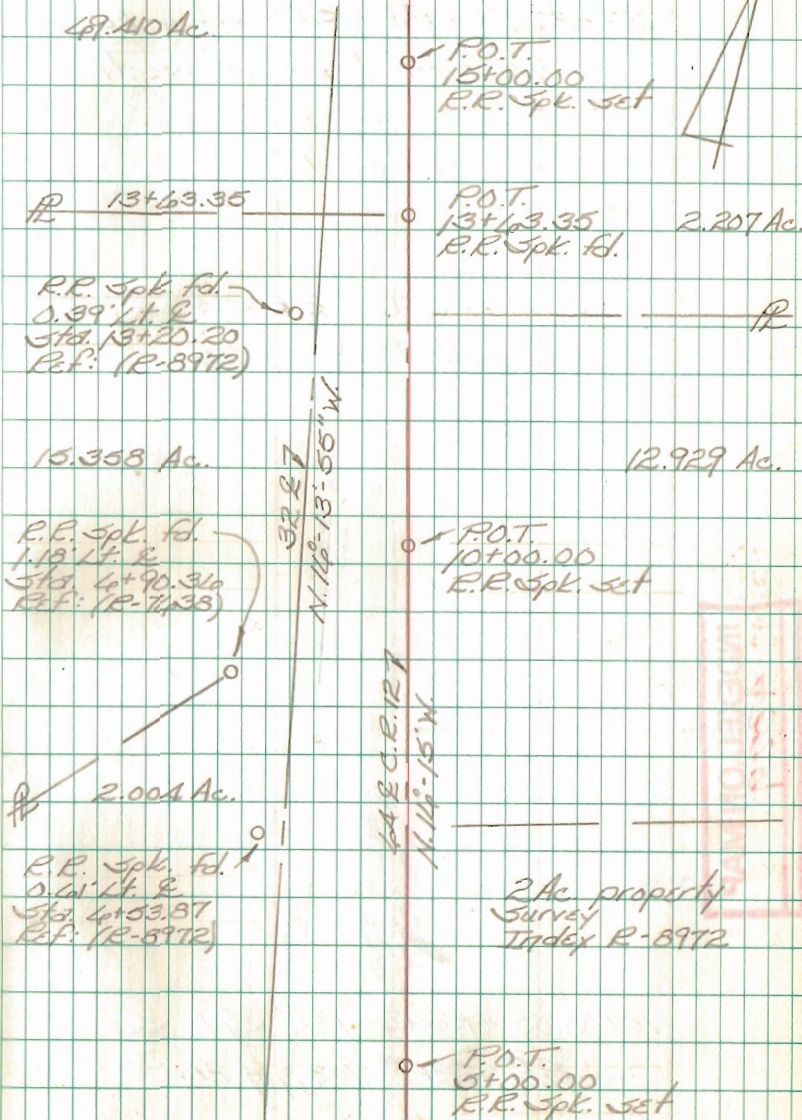 69.410 Ac.
P.O.T.
15+00.00
R.R. Spk. set
℄ 13+63.35
P.O.T.
13+63.35
R.R. Spk. fd.
2.207 Ac.
R.R. Spk fd.
0.39' Lt. ℄
Sta. 13+20.20
Ref: (R-8972)
PL
15.358 Ac.
12.929 Ac.
32 ℄
N.16°-13'-55"W.
R.R. Spk. fd.
1.18' Lt. ℄
Sta. 6+90.36
Ref: (R-7638)
P.O.T.
10+00.00
R.R. Spk. set
64 ℄ C.R. 127
N.16°-15'W.
PL
2.004 Ac.
R.R. Spk. fd.
0.61' Lt. ℄
Sta. 6+53.87
Ref: (R-8972)
2 Ac. property
Survey
Index R-8972
P.O.T.
5+00.00
R.R. Spk. set